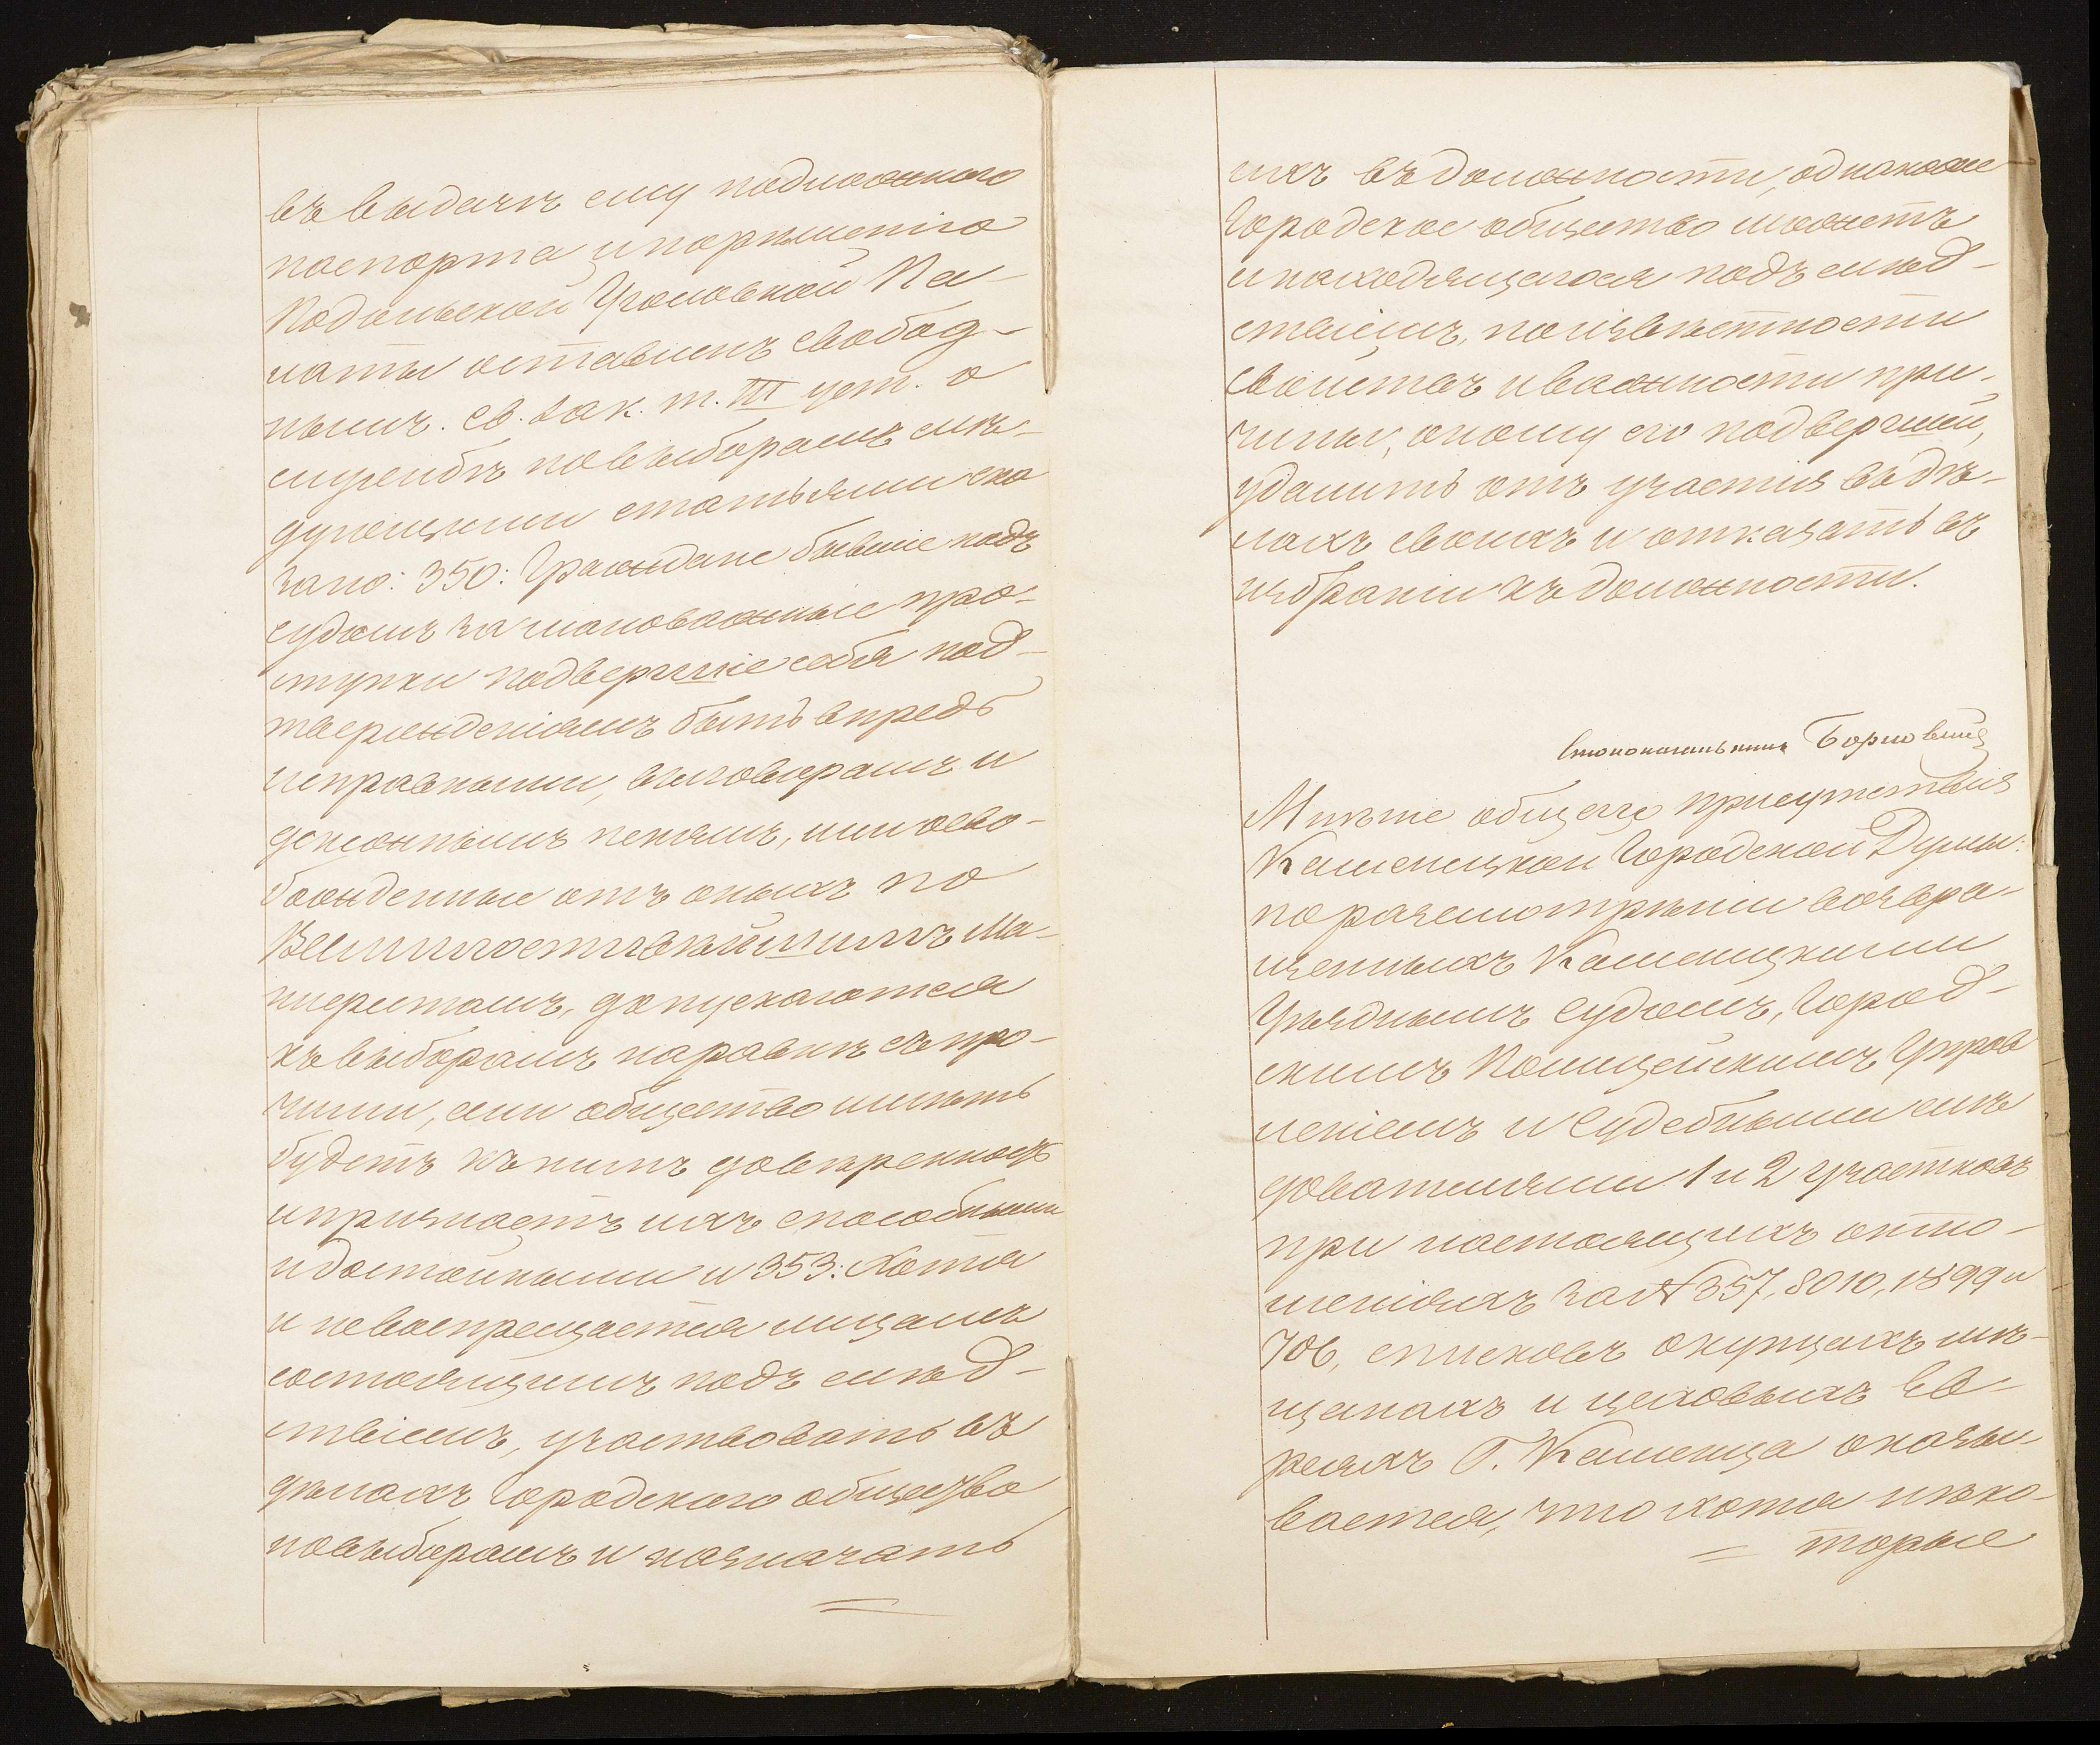 въ выдачѣ ему подложнаго
паспорта и порѣшенію
Подольской Уголовной Па-
латы оставленъ свобод-
нымъ. Св. Зак. т. III уст. о
службѣ по выборамъ слѣ-
дующими статьями ска
зано: 350: Граждане бывшіе подъ
судомъ за маловажные про-
ступки подвергшіе себя под-
твержденіямъ быть впредь
исправными, выговорамъ и
денежнымъ пенямъ, или осво-
божденные отъ оныхъ по
Всемилостивѣйшимъ Ма-
нифестамъ, допускаются
къ выборамъ наравнѣ съ про-
чими, если общество имѣть
будетъ къ нимъ довѣренность
и признаетъ ихъ способными
и достойными и 353: Хотя
и невоспрещается лицамъ
состоящимъ подъ слѣд-
ствіемъ, участвовать въ
дѣлахъ городскаго общества
по выборамъ и назначать
ихъ въ должности, однакоже
Городское общество можетъ
и находящагося подъ слѣд-
ствіемъ, по извѣстности
свойства и важности при-
чины, оному его подвергшей,
удалить отъ участія въ дѣ-
лахъ своихъ и отказать въ
избраніи къ должности.
Столоначальникъ
Мнѣніе общаго присутствія
Каменецкой Городской Думы:
по разсмотрѣніи возвра-
щенныхъ Каменецкими
Уѣзднымъ Судомъ, Город-
скимъ Полицейскимъ Управ
леніемъ и Судебными слѣ
дователями 1 и 2 участковъ
при настоящихъ отно-
шеніяхъ за № 357, 8010, 1899 и
706, списковъ о купцахъ мѣ-
щанахъ и цеховыхъ Ев-
реяхъ Г. Каменца оказы-
вается, что хотя нѣко-
торые